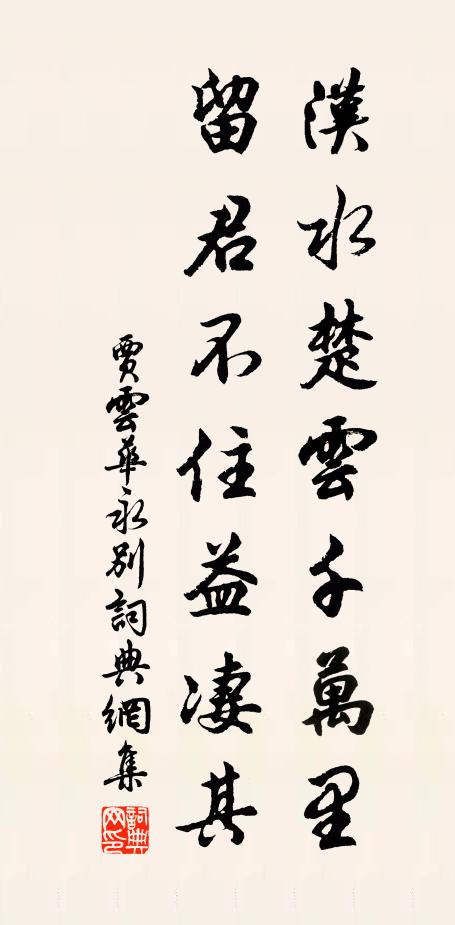 漢水楚雲千萬里
留君不住益凄其
賈雲華永別詞典網集
詞典網印